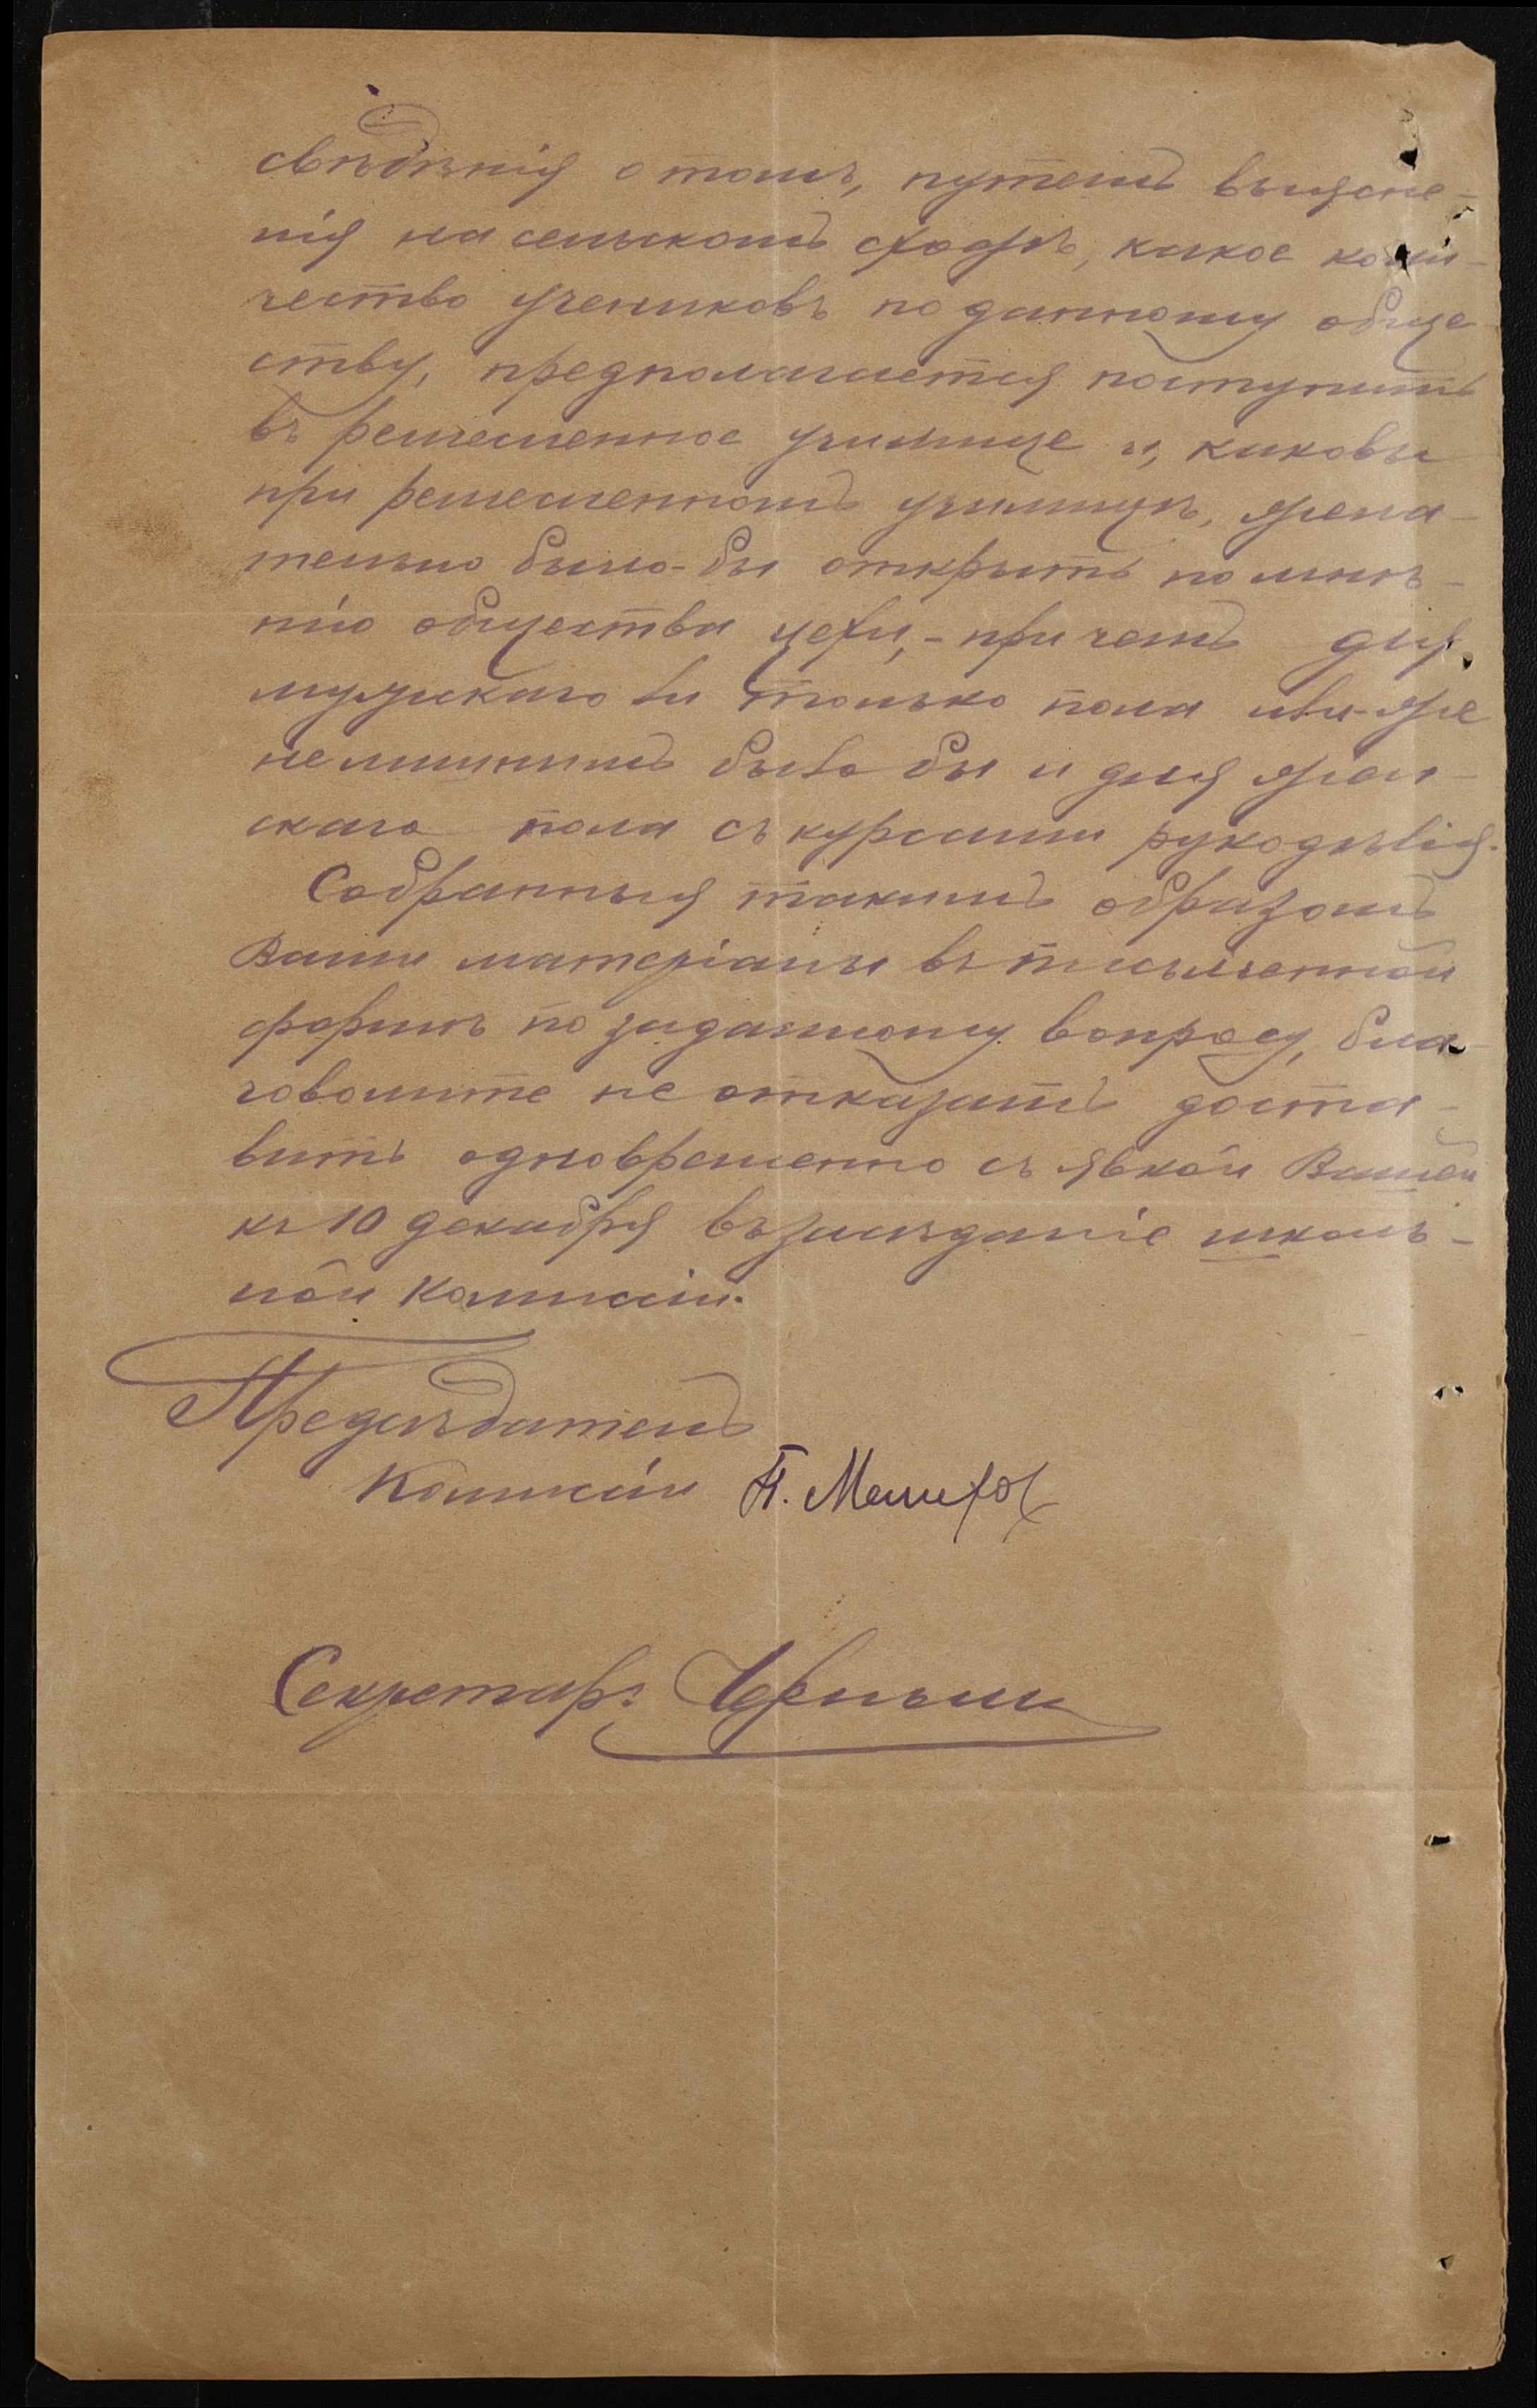 свѣдѣнія о томъ, путемъ выясне-
нія на сельскомъ сходѣ, какое коли-
чество учениковъ по данному обще-
ству, предполагается поступить
въ ремесленное училище и, каковы
при ремесленномъ училищѣ, жела-
тельно было-бы открыть по мнѣ-
нію общества цехи, - при чемъ для
мужскаго ли только пола или-же
нелишнимъ было бы и для жен-
скаго пола съ курсами рукодѣлія.
Собранныя такимъ образомъ
Вами матеріалы въ письменной
формѣ по заданному вопросу, бла-
говолите не отказать доста-
вить одновременно съ явкой Вашей
къ 10 декабря въ засѣданіе школь-
ной комиссіи.
Предсѣдатель
Комиссіи П. Мелихов
Секретарь